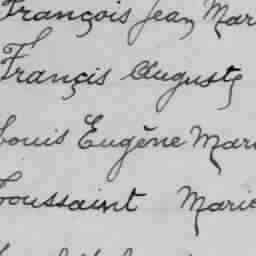 François Jean Mar
Françis Auguste
Louis Eugène Mari
Toussaint Marie